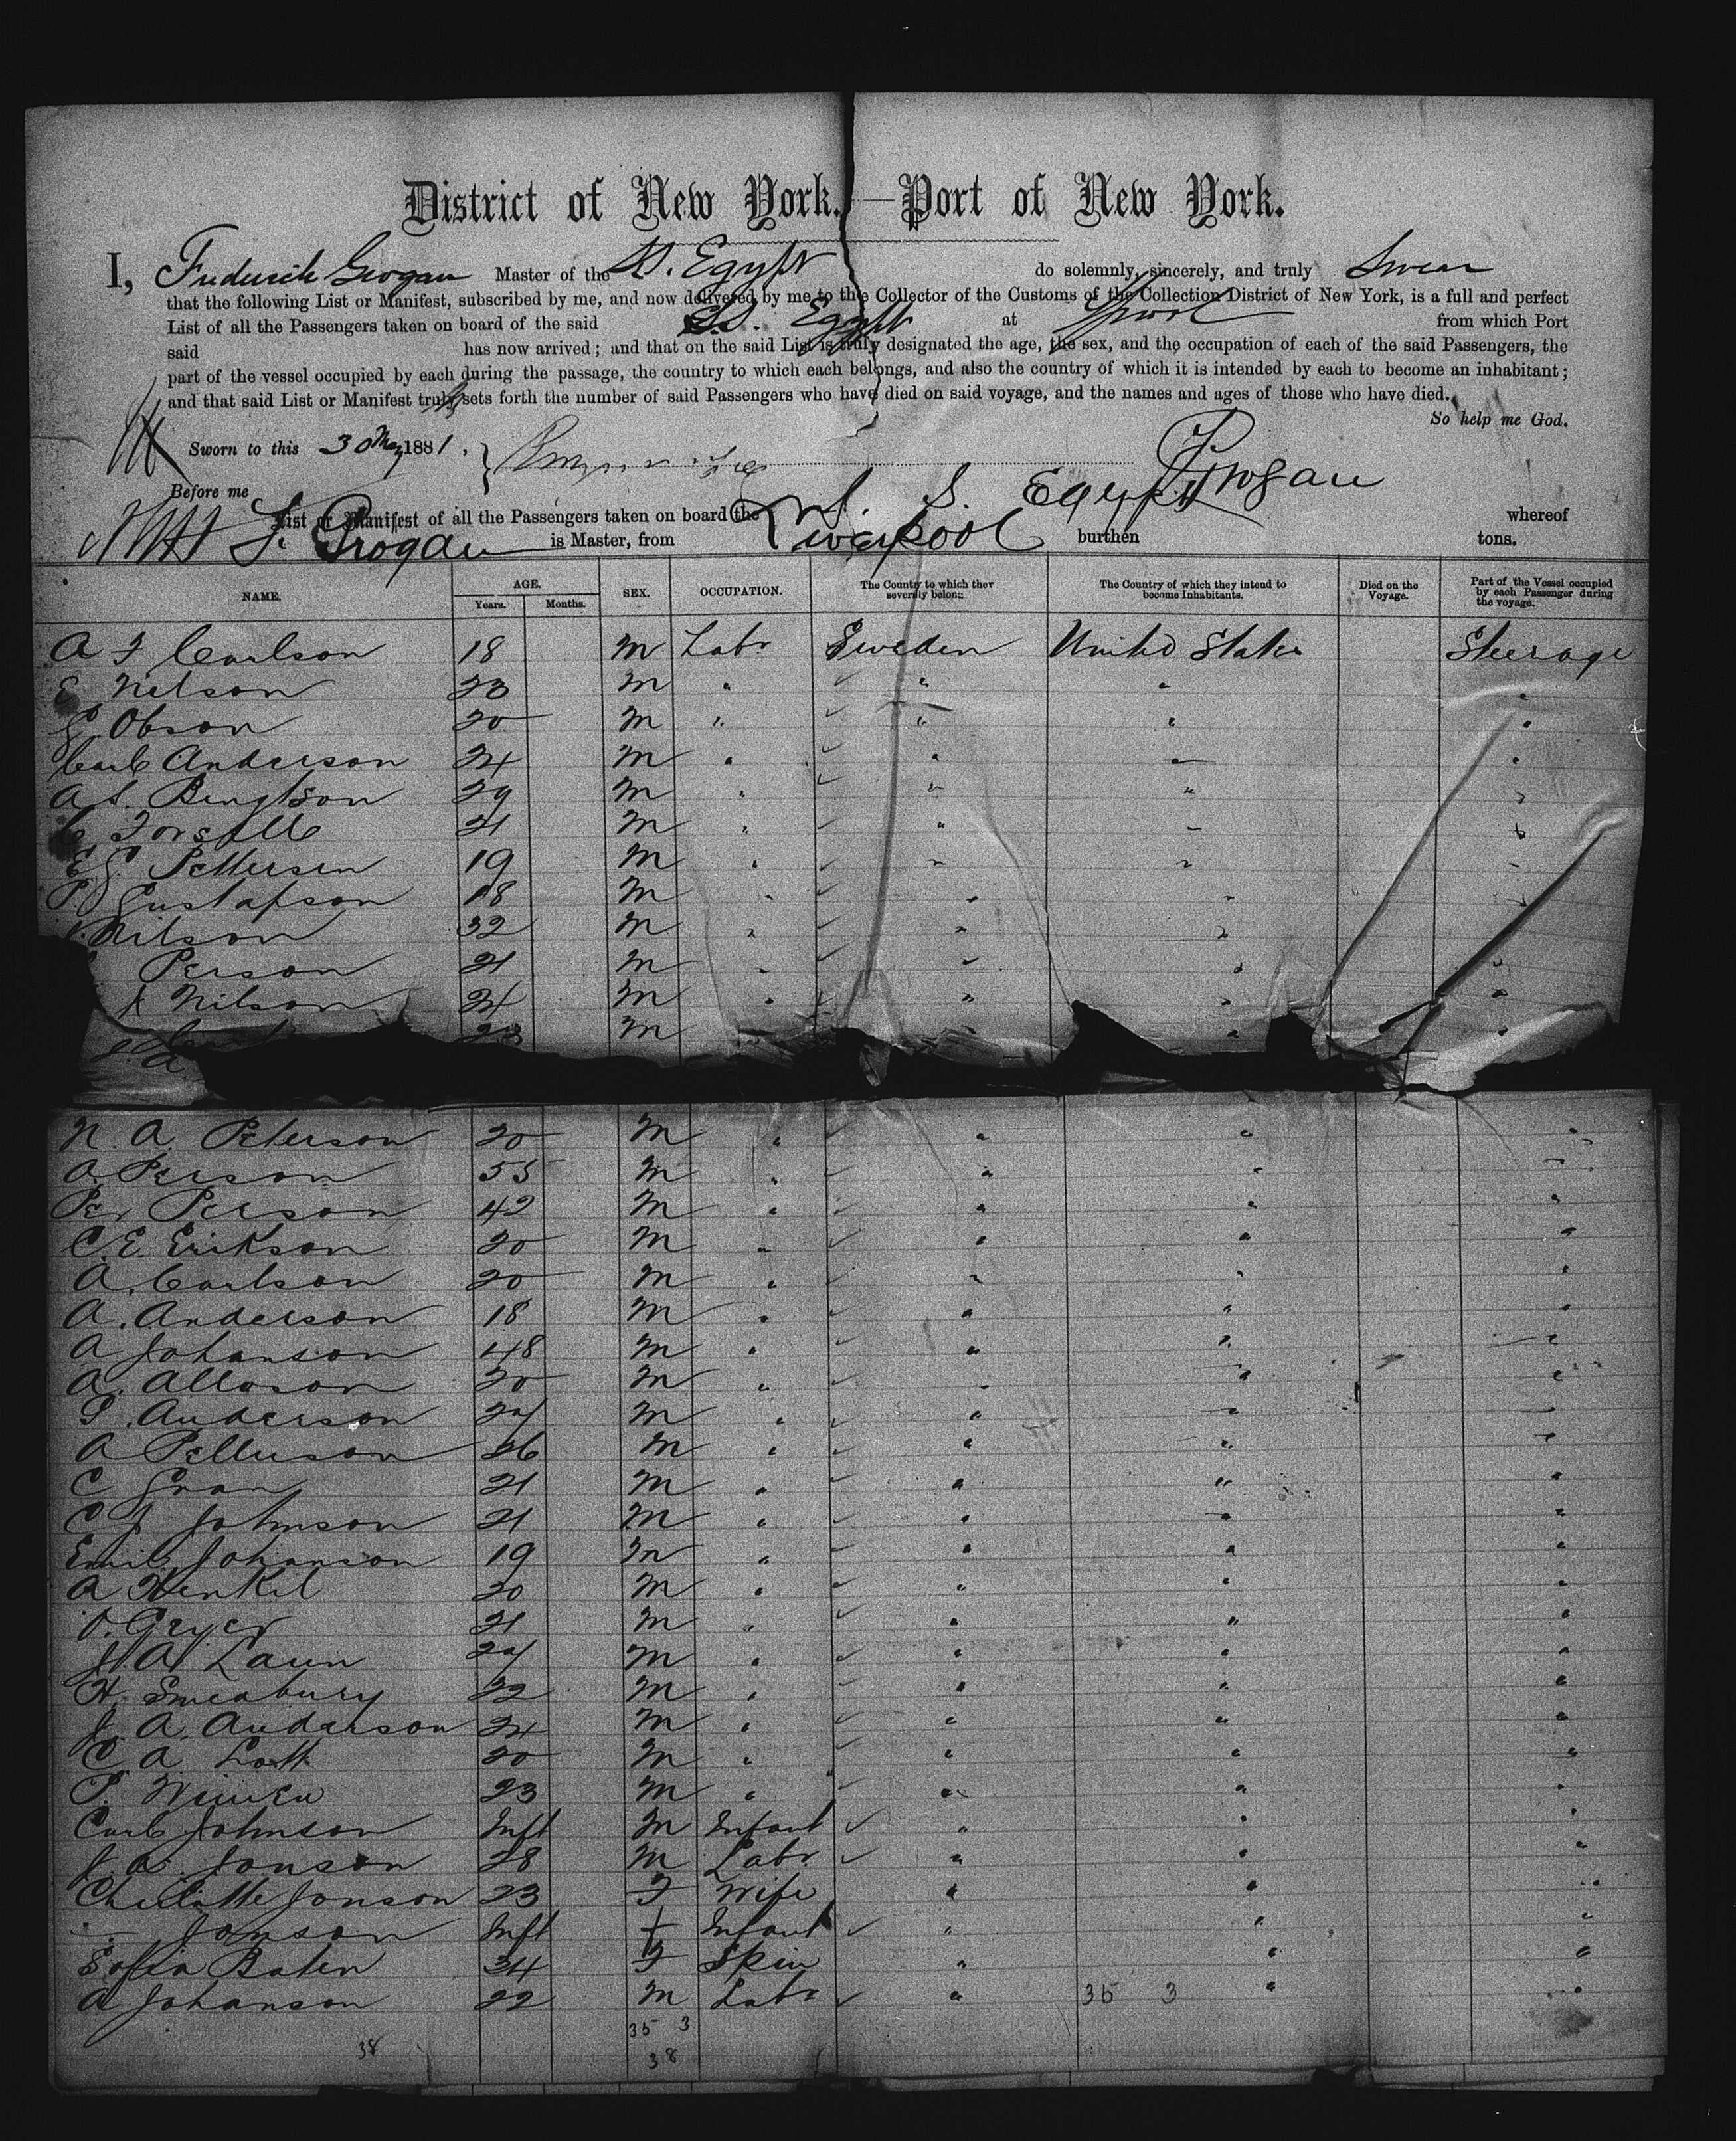 District of New York.—Port of New York.
I, Frederick Grogan Master of the SS. Egypt do solemnly, sincerely, and truly Swear
that the following List or Manifest, subscribed by me, and now delivered by me to the Collector of the Customs of the Collection District of New York, is a full and perfect
List of all the Passengers taken on board of the said SS. Egypt at Lpool from which Port
said has now arrived; and that on the said List is truly designated the age, the sex, and the occupation of each of the said Passengers, the
part of the vessel occupied by each during the passage, the country to which each belongs, and also the country of which it is intended by each to become an inhabitant;
and that said List or Manifest truly sets forth the number of said Passengers who have died on said voyage, and the names and ages of those who have died.
So help me God.
Sworn to this 30 May 1881.
F. Grogan
Before me
List or Manifest of all the Passengers taken on board the S. S. Egypt whereof
F. Grogan is Master, from Liverpool burthen tons.
NAME. AGE. SEX. OCCUPATION. The Country to which they severally belong. The Country of which they intend to become Inhabitants. Died on the Voyage. Part of the Vessel occupied by each Passenger during the voyage.
Years. Months.
A F Carlson 18 M Labr Sweden United States Steerage
E Nelson 23 M " " " "
Obson 20 M " " " "
Carl Anderson 24 M " " " "
A. S. Bengtson 29 M " " " "
21 M " " " "
E G. Pettersen 19 M " " " "
P Gustafson 18 M " " " "
Nilson 32 M " " " "
Person 21 M " " " "
Nilson 24 M " " " "
23 M " "
N. A. Peterson 20 M " " " "
A. Person 55 M " " " "
Per Person 42 M " " " "
C. E. Erikson 20 M " " " "
A. Carlson 20 M " " " "
A. Anderson 18 M " " " "
A Johanson 48 M " " " "
A. Alloson 20 M " " " "
P. Anderson 27 M " " " "
A Pelluson 26 M " " " "
C Gran 21 M " " " "
C J Johnson 21 M " " " "
Emil Johanson 19 M " " " "
A Henkel 20 M " " " "
O. Geyer 21 M " " " "
J A Laun 27 M " " " "
H. Smeabury 22 M " " " "
J. A. Anderson 24 M " " " "
C A Lott 20 M " " " "
P. 23 M " " " "
Carl Johnson Inft M Infant " " "
J. A. Jonson 28 M Labr " " "
Charlotte Jonson 23 F Wife " " "
— Jonson Inft f Infant " " "
Sofia Baten 34 F Spin " " "
A Johanson 22 M Labr " 35 3 " "
35 3
38 38